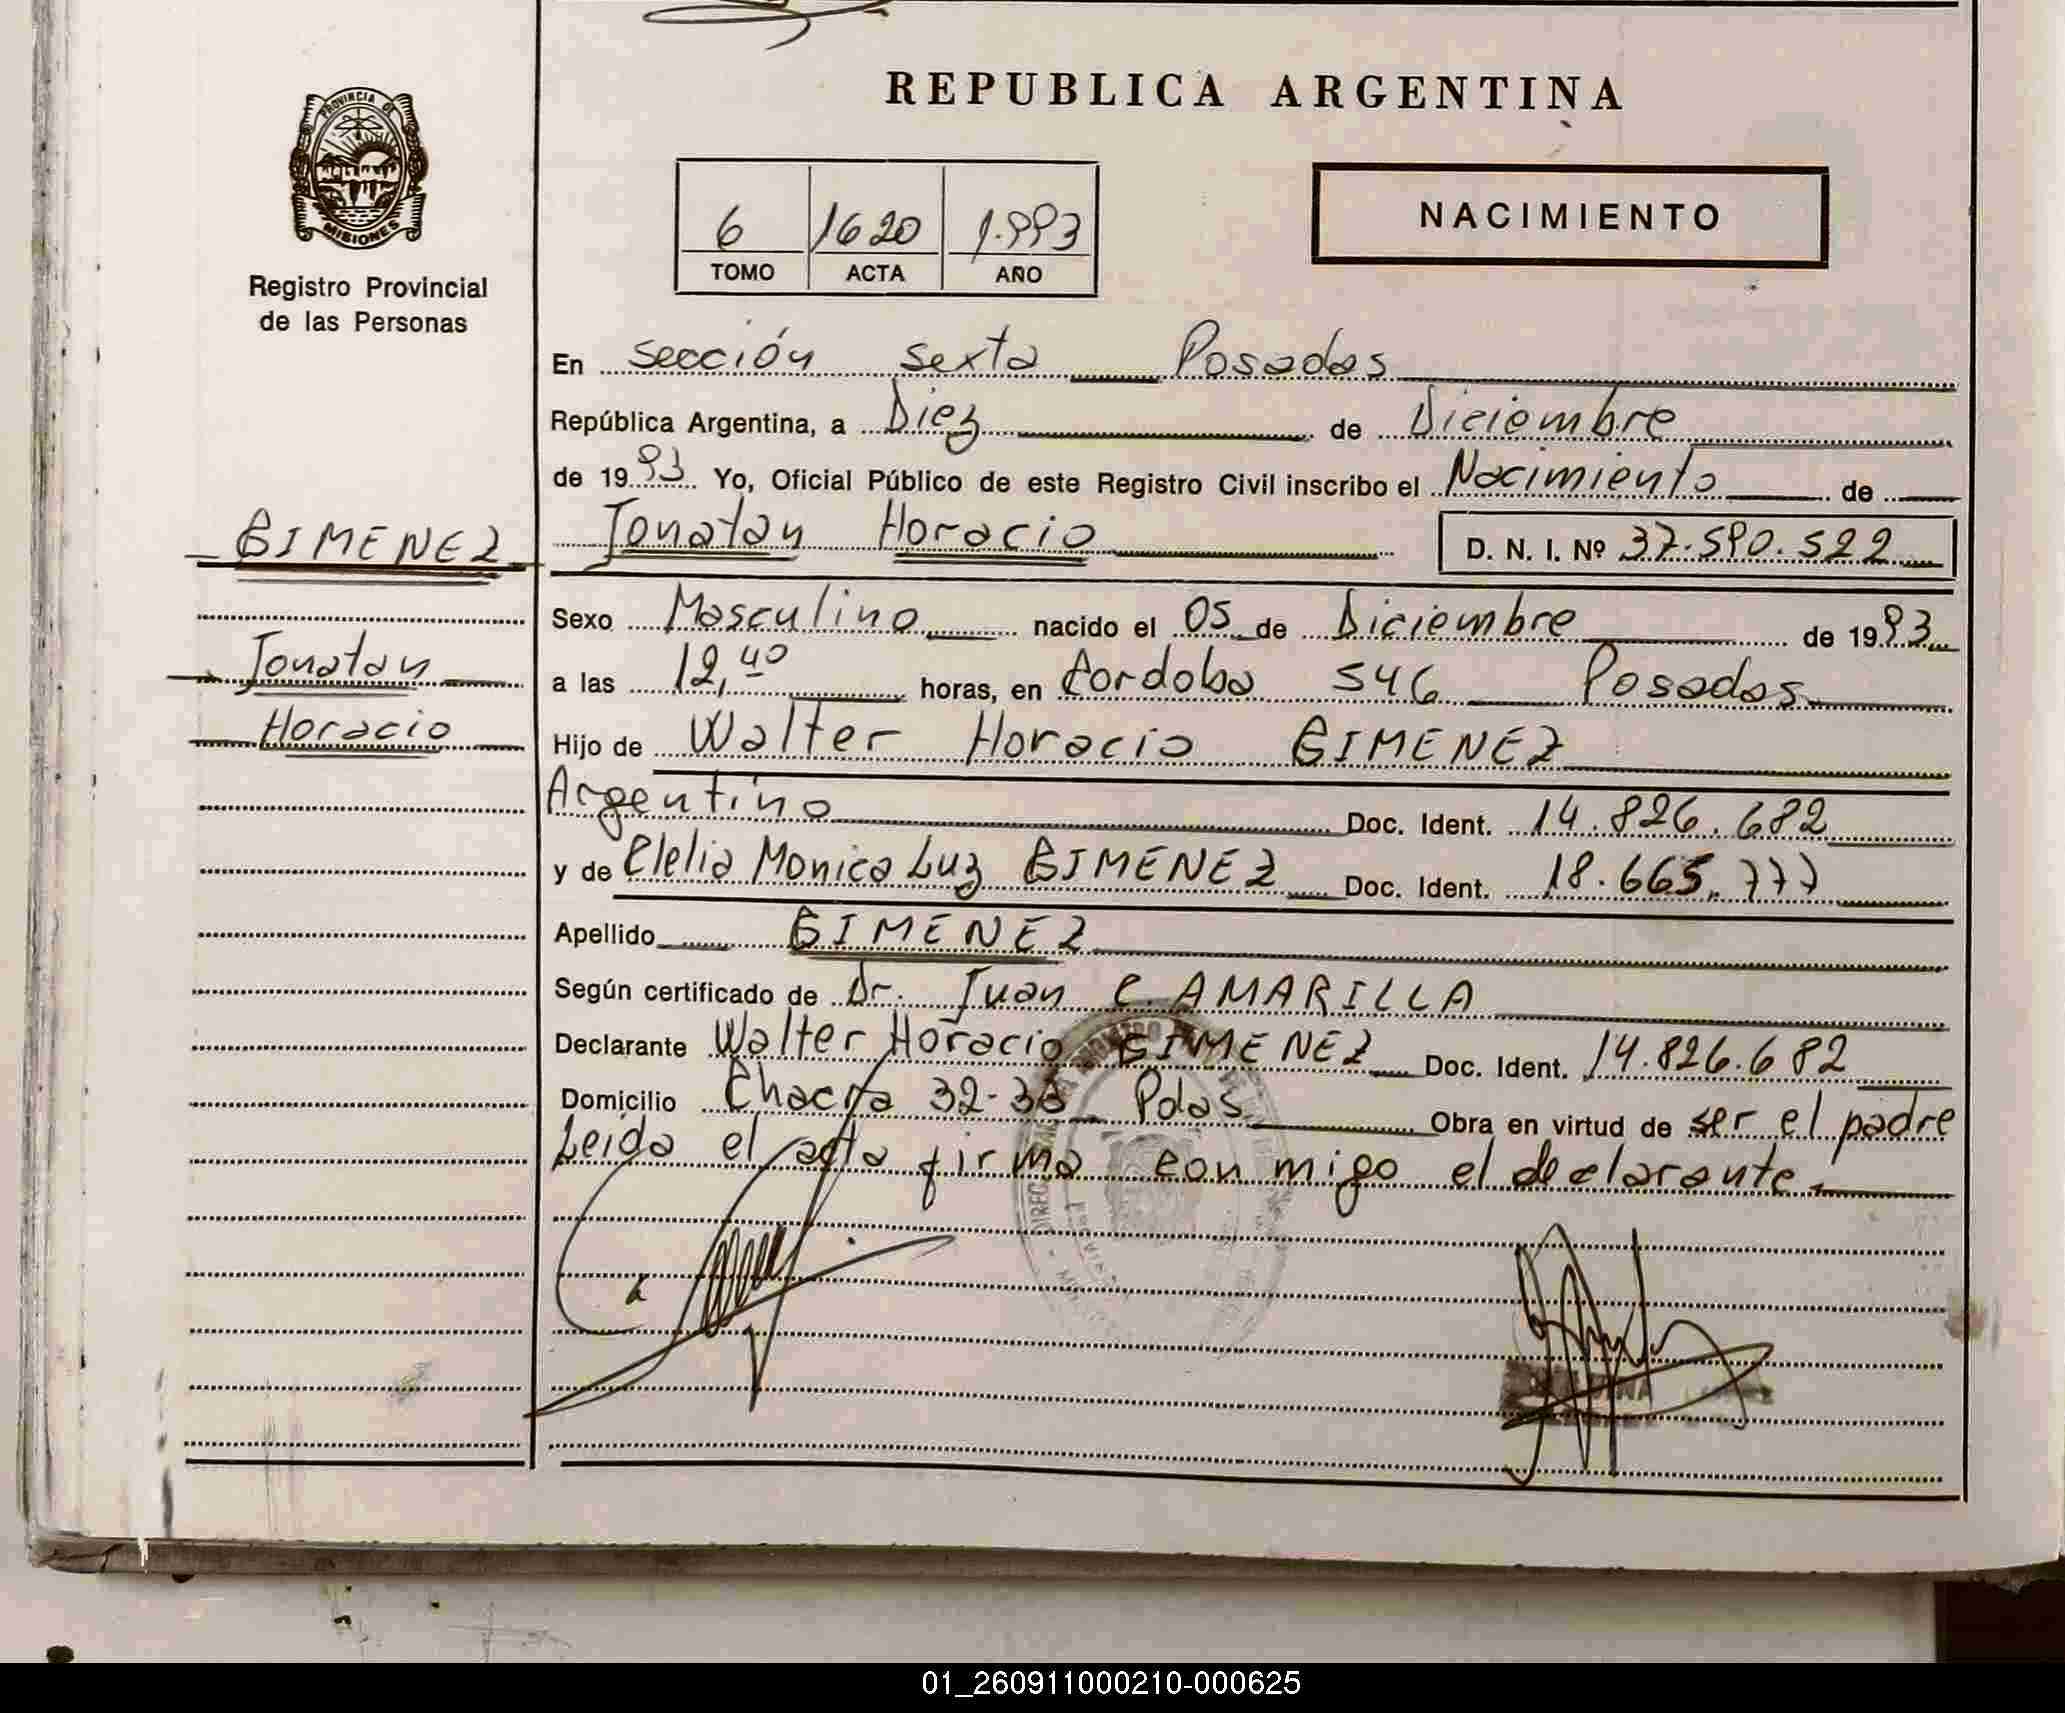 REPUBLICA ARGENTINA
PROVINCIA DE
MISIONES
Registro Provincial
de las Personas
6 1620 1.993
TOMO ACTA AÑO
NACIMIENTO
En sección sexta Posadas
República Argentina, a Diez de Diciembre
de 1993 Yo, Oficial Público de este Registro Civil inscribo el Nacimiento de
GIMENEZ
Jonatan Horacio D. N. I. Nº 37.590.522
Sexo Masculino nacido el 05 de Diciembre de 1993
Jonatan
a las 12,40 horas, en Cordoba 546 Posadas
Horacio
Hijo de Walter Horacio GIMENEZ
Argentino Doc. Ident. 14.826.682
y de Clelia Monica Luz GIMENEZ Doc. Ident. 18.665.777
Apellido GIMENEZ
Según certificado de Dr. Juan C. AMARILLA
Declarante Walter Horacio GIMENEZ Doc. Ident. 14.826.682
Domicilio Chacra 32-33 Pdas Obra en virtud de ser el padre
Leida el acta firma conmigo el declarante.
01_260911000210-000625